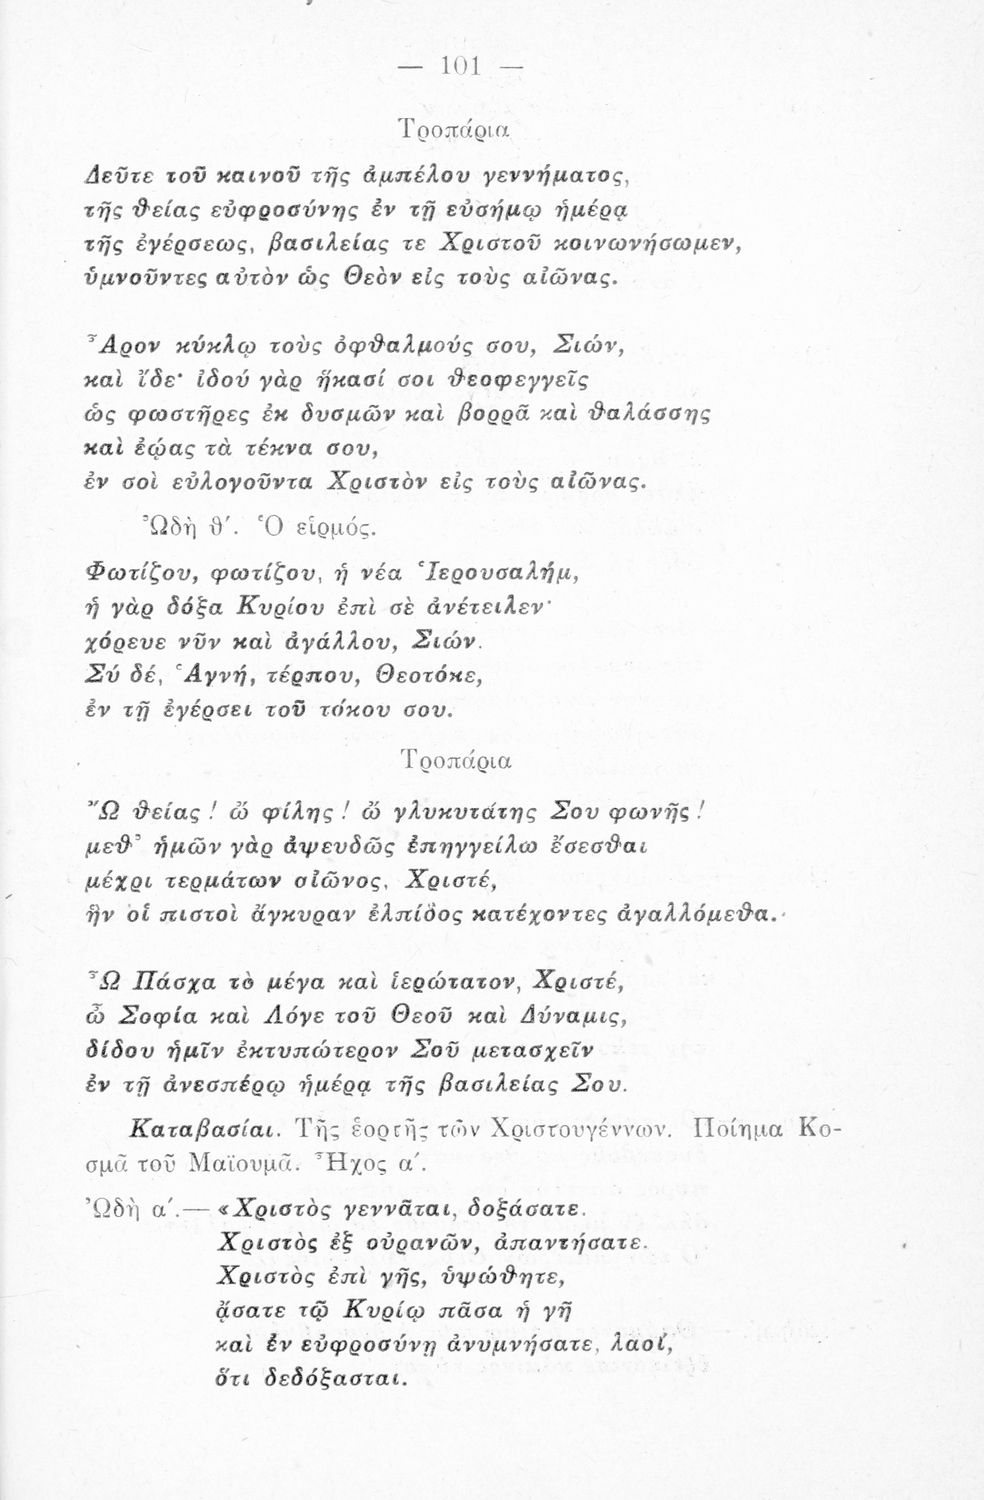 — 101 —
Τροπάρια
Δεῦτε τοῦ καινοῦ τῆς ἀμπέλου γεννήματος,
τῆς θείας εὐφροσύνης ἐν τῇ εὐσήμῳ ἡμέρᾳ
τῆς ἐγέρσεως, βασιλείας τε Χριστοῦ κοινωνήσωμεν,
ὑμνοῦντες αὐτὸν ὡς Θεὸν εἰς τοὺς αἰῶνας.
Ἆρον κύκλῳ τοὺς ὀφθαλμούς σου, Σιών,
καὶ ἴδε· ἰδού γὰρ ἥκασί σοι θεοφεγγεῖς
ὡς φωστῆρες ἐκ δυσμῶν καὶ βορρᾶ καὶ θαλάσσης
καὶ ἑῴας τὰ τέκνα σου,
ἐν σοὶ εὐλογοῦντα Χριστὸν εἰς τοὺς αἰῶνας.
ᾨδὴ θ΄. Ὁ εἱρμός.
Φωτίζου, φωτίζου, ἡ νέα Ἱερουσαλήμ,
ἡ γὰρ δόξα Κυρίου ἐπὶ σὲ ἀνέτειλεν·
χόρευε νῦν καὶ ἀγάλλου, Σιών.
Σύ δέ, Ἁγνή, τέρπου, Θεοτόκε,
ἐν τῇ ἐγέρσει τοῦ τόκου σου.
Τροπάρια
Ὢ θείας! ὢ φίλης! ὢ γλυκυτάτης Σου φωνῆς!
μεθ' ἡμῶν γὰρ ἀψευδῶς ἐπηγγείλω ἔσεσθαι
μέχρι τερμάτων αἰῶνος, Χριστέ,
ἣν οἱ πιστοὶ ἄγκυραν ἐλπίδος κατέχοντες ἀγαλλόμεθα.
Ὦ Πάσχα τὸ μέγα καὶ ἱερώτατον, Χριστέ,
ὦ Σοφία καὶ Λόγε τοῦ Θεοῦ καὶ Δύναμις,
δίδου ἡμῖν ἐκτυπώτερον Σοῦ μετασχεῖν
ἐν τῇ ἀνεσπέρῳ ἡμέρᾳ τῆς βασιλείας Σου.
Καταβασίαι. Τῆς ἑορτῆς τῶν Χριστουγέννων. Ποίημα Κο-
σμᾶ τοῦ Μαϊουμᾶ. Ἦχος α΄.
Ὠδὴ α΄.— «Χριστὸς γεννᾶται, δοξάσατε.
Χριστὸς ἐξ οὐρανῶν, ἀπαντήσατε.
Χριστὸς ἐπὶ γῆς, ὑψώθητε,
ᾄσατε τῷ Κυρίῳ πᾶσα ἡ γῆ
καὶ ἐν εὐφροσύνῃ ἀνυμνήσατε, λαοί,
ὅτι δεδόξασται.